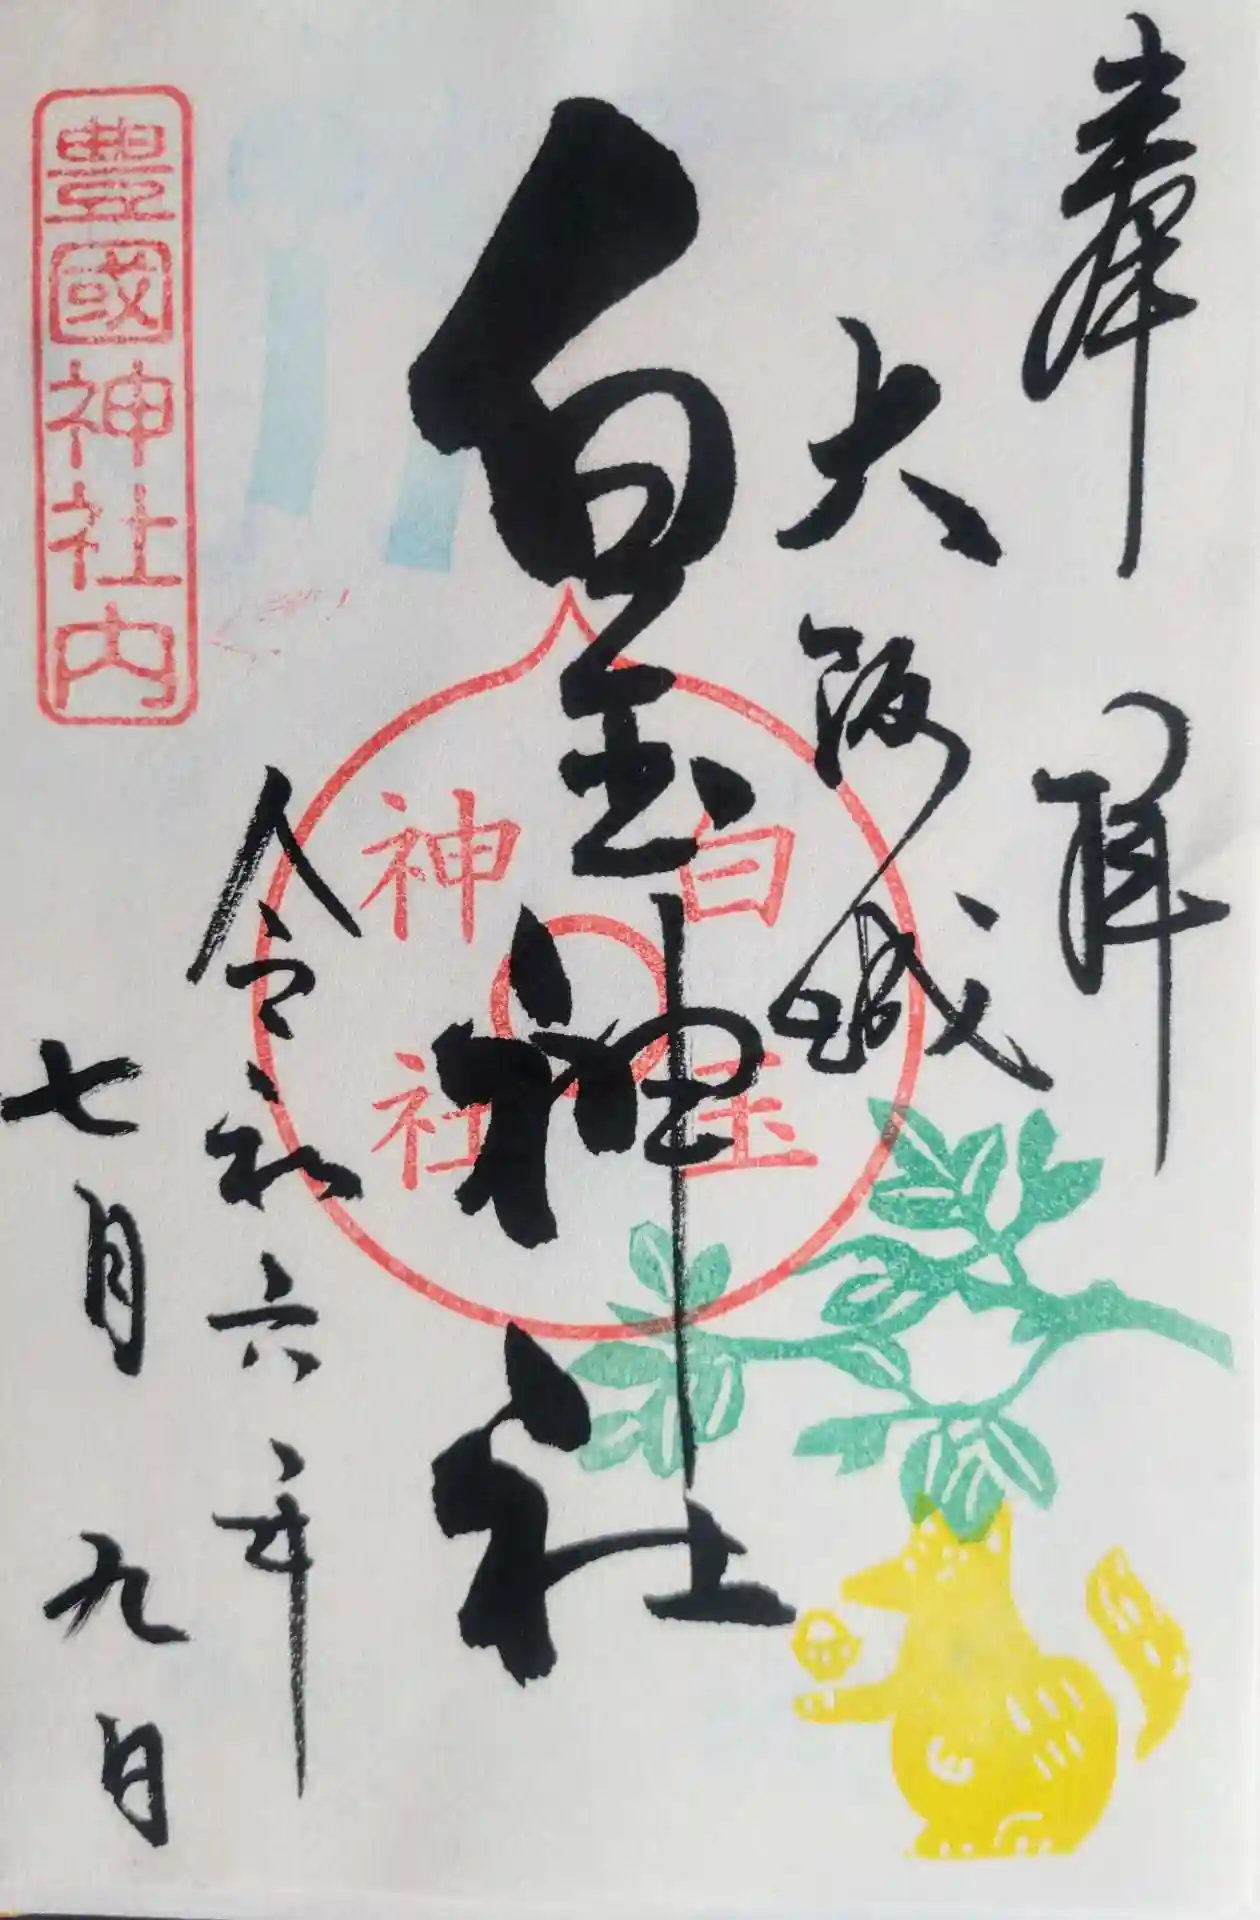 奉拝
大阪城
白玉神社
白玉
神社
令和六年
七月九日
豊國神社内